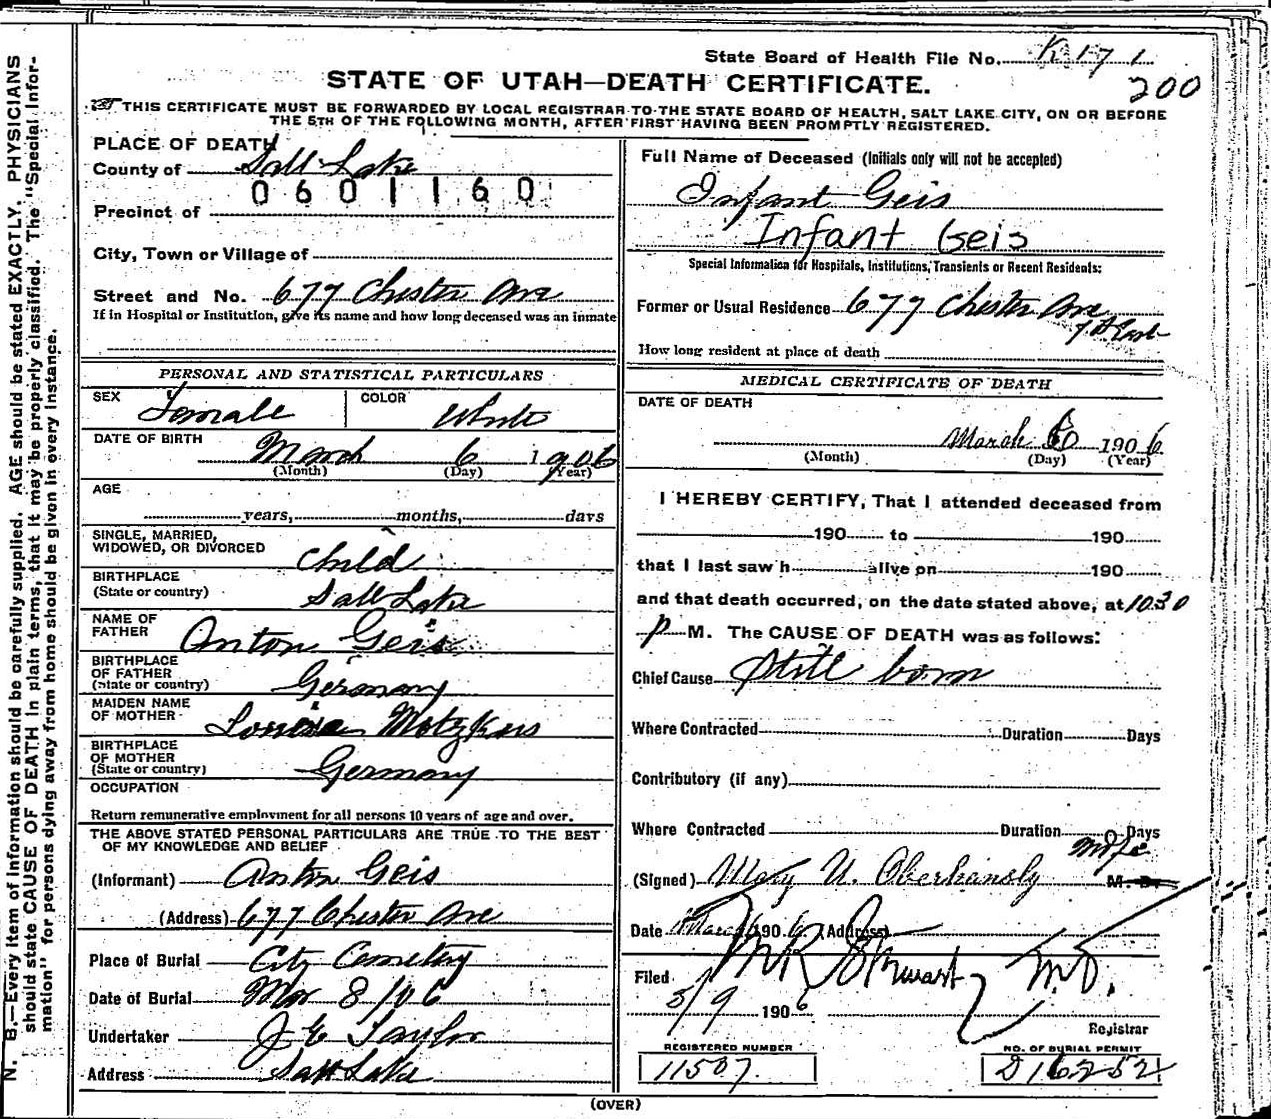 State Board of Health File No. K 171
200
STATE OF UTAH—DEATH CERTIFICATE.
THIS CERTIFICATE MUST BE FORWARDED BY LOCAL REGISTRAR TO THE STATE BOARD OF HEALTH, SALT LAKE CITY, ON OR BEFORE
THE 5TH OF THE FOLLOWING MONTH, AFTER FIRST HAVING BEEN PROMPTLY REGISTERED.
PLACE OF DEATH
County of Salt Lake
0601160
Precinct of
City, Town or Village of
Street and No. 677 Chester Ave
If in Hospital or Institution, give its name and how long deceased was an inmate
PERSONAL AND STATISTICAL PARTICULARS
SEX Female COLOR White
DATE OF BIRTH March 6 1906
(Month) (Day) (Year)
AGE
years, months, days
SINGLE, MARRIED,
WIDOWED, OR DIVORCED Child
BIRTHPLACE
(State or country) Salt Lake
NAME OF
FATHER Anton Geis
BIRTHPLACE
OF FATHER
(State or country) Germany
MAIDEN NAME
OF MOTHER Louisa Motzkus
BIRTHPLACE
OF MOTHER
(State or country) Germany
OCCUPATION
Return remunerative employment for all persons 10 years of age and over.
THE ABOVE STATED PERSONAL PARTICULARS ARE TRUE TO THE BEST
OF MY KNOWLEDGE AND BELIEF
(Informant) Anton Geis
(Address) 677 Chester Ave
Place of Burial City Cemetery
Date of Burial Mar 8/06
Undertaker J E Taylor
Address Salt Lake
Full Name of Deceased (Initials only will not be accepted)
Infant Geis
Infant Geis
Special Information for Hospitals, Institutions, Transients or Recent Residents:
Former or Usual Residence 677 Chester Ave
How long resident at place of death
MEDICAL CERTIFICATE OF DEATH
DATE OF DEATH
March 6 1906
(Month) (Day) (Year)
I HEREBY CERTIFY, That I attended deceased from
190 to 190
that I last saw h alive on 190
and that death occurred, on the date stated above, at 10.30
P M. The CAUSE OF DEATH was as follows:
Chief Cause Still born
Where Contracted Duration Days
Contributory (if any)
Where Contracted Duration 0 Days
(Signed) Mary U. Oberhansly M. D.
Date March 1906 (Address)
Filed 3/9 1906 M R Stewart M.D.
Registrar
REGISTERED NUMBER
11507
NO. OF BURIAL PERMIT
D 16252
(OVER)
N. B.—Every item of information should be carefully supplied. AGE should be stated EXACTLY. PHYSICIANS
should state CAUSE OF DEATH in plain terms, that it may be properly classified. The "Special Infor-
mation" for persons dying away from home should be given in every instance.